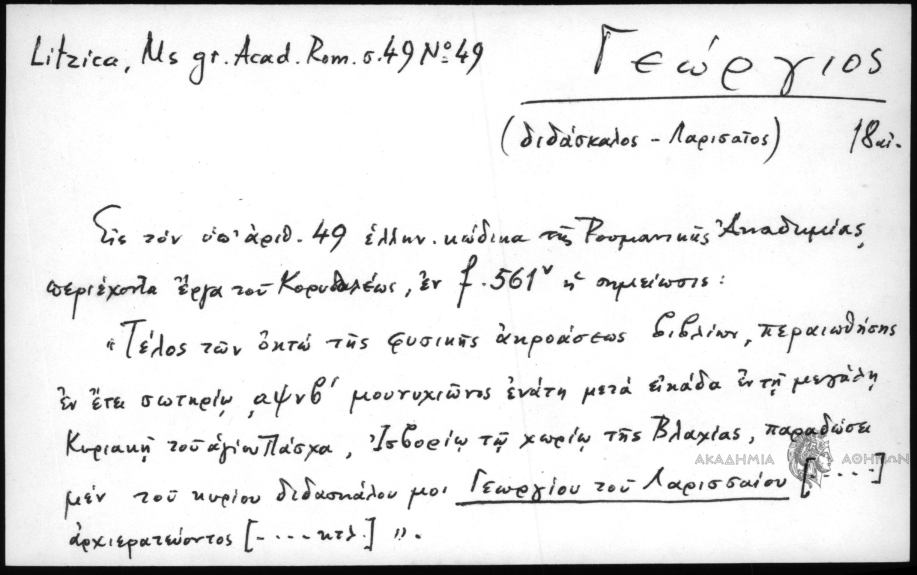 Litzica, Ms gr. Acad. Rom. σ. 49 Nº 49
Γεώργιος
(διδάσκαλος - Λαρισαῖος) 18 αἰ.
Εἰς τὸν ὑπ' ἀριθ. 49 ἑλλην. κώδικα τῆς Ρουμανικῆς Ἀκαδημίας,
περιέχοντα ἔργα τοῦ Κορυδαλέως, ἐν f. 561ᵛ ἡ σημείωσις:
"Τέλος τῶν ὀκτώ τῆς φυσικῆς ἀκροάσεως βιβλίων, περαιωθήσης
ἐν ἔτει σωτηρίῳ ͵αψνβ' μουνυχιῶνος ἐνάτη μετά εἰκάδα ἐν τῇ μεγάλῃ
Κυριακῇ τοῦ ἁγίου Πάσχα, Ἰσβορίῳ τῷ χωρίῳ τῆς Βλαχίας, παραδώσει
ΑΚΑΔΗΜΙΑ ΑΘΗΝΩΝ
μέν τοῦ κυρίου διδασκάλου μοι Γεωργίου τοῦ Λαρισσαίου [....]
ἀρχιερατεύοντος [-....κτλ.] ".